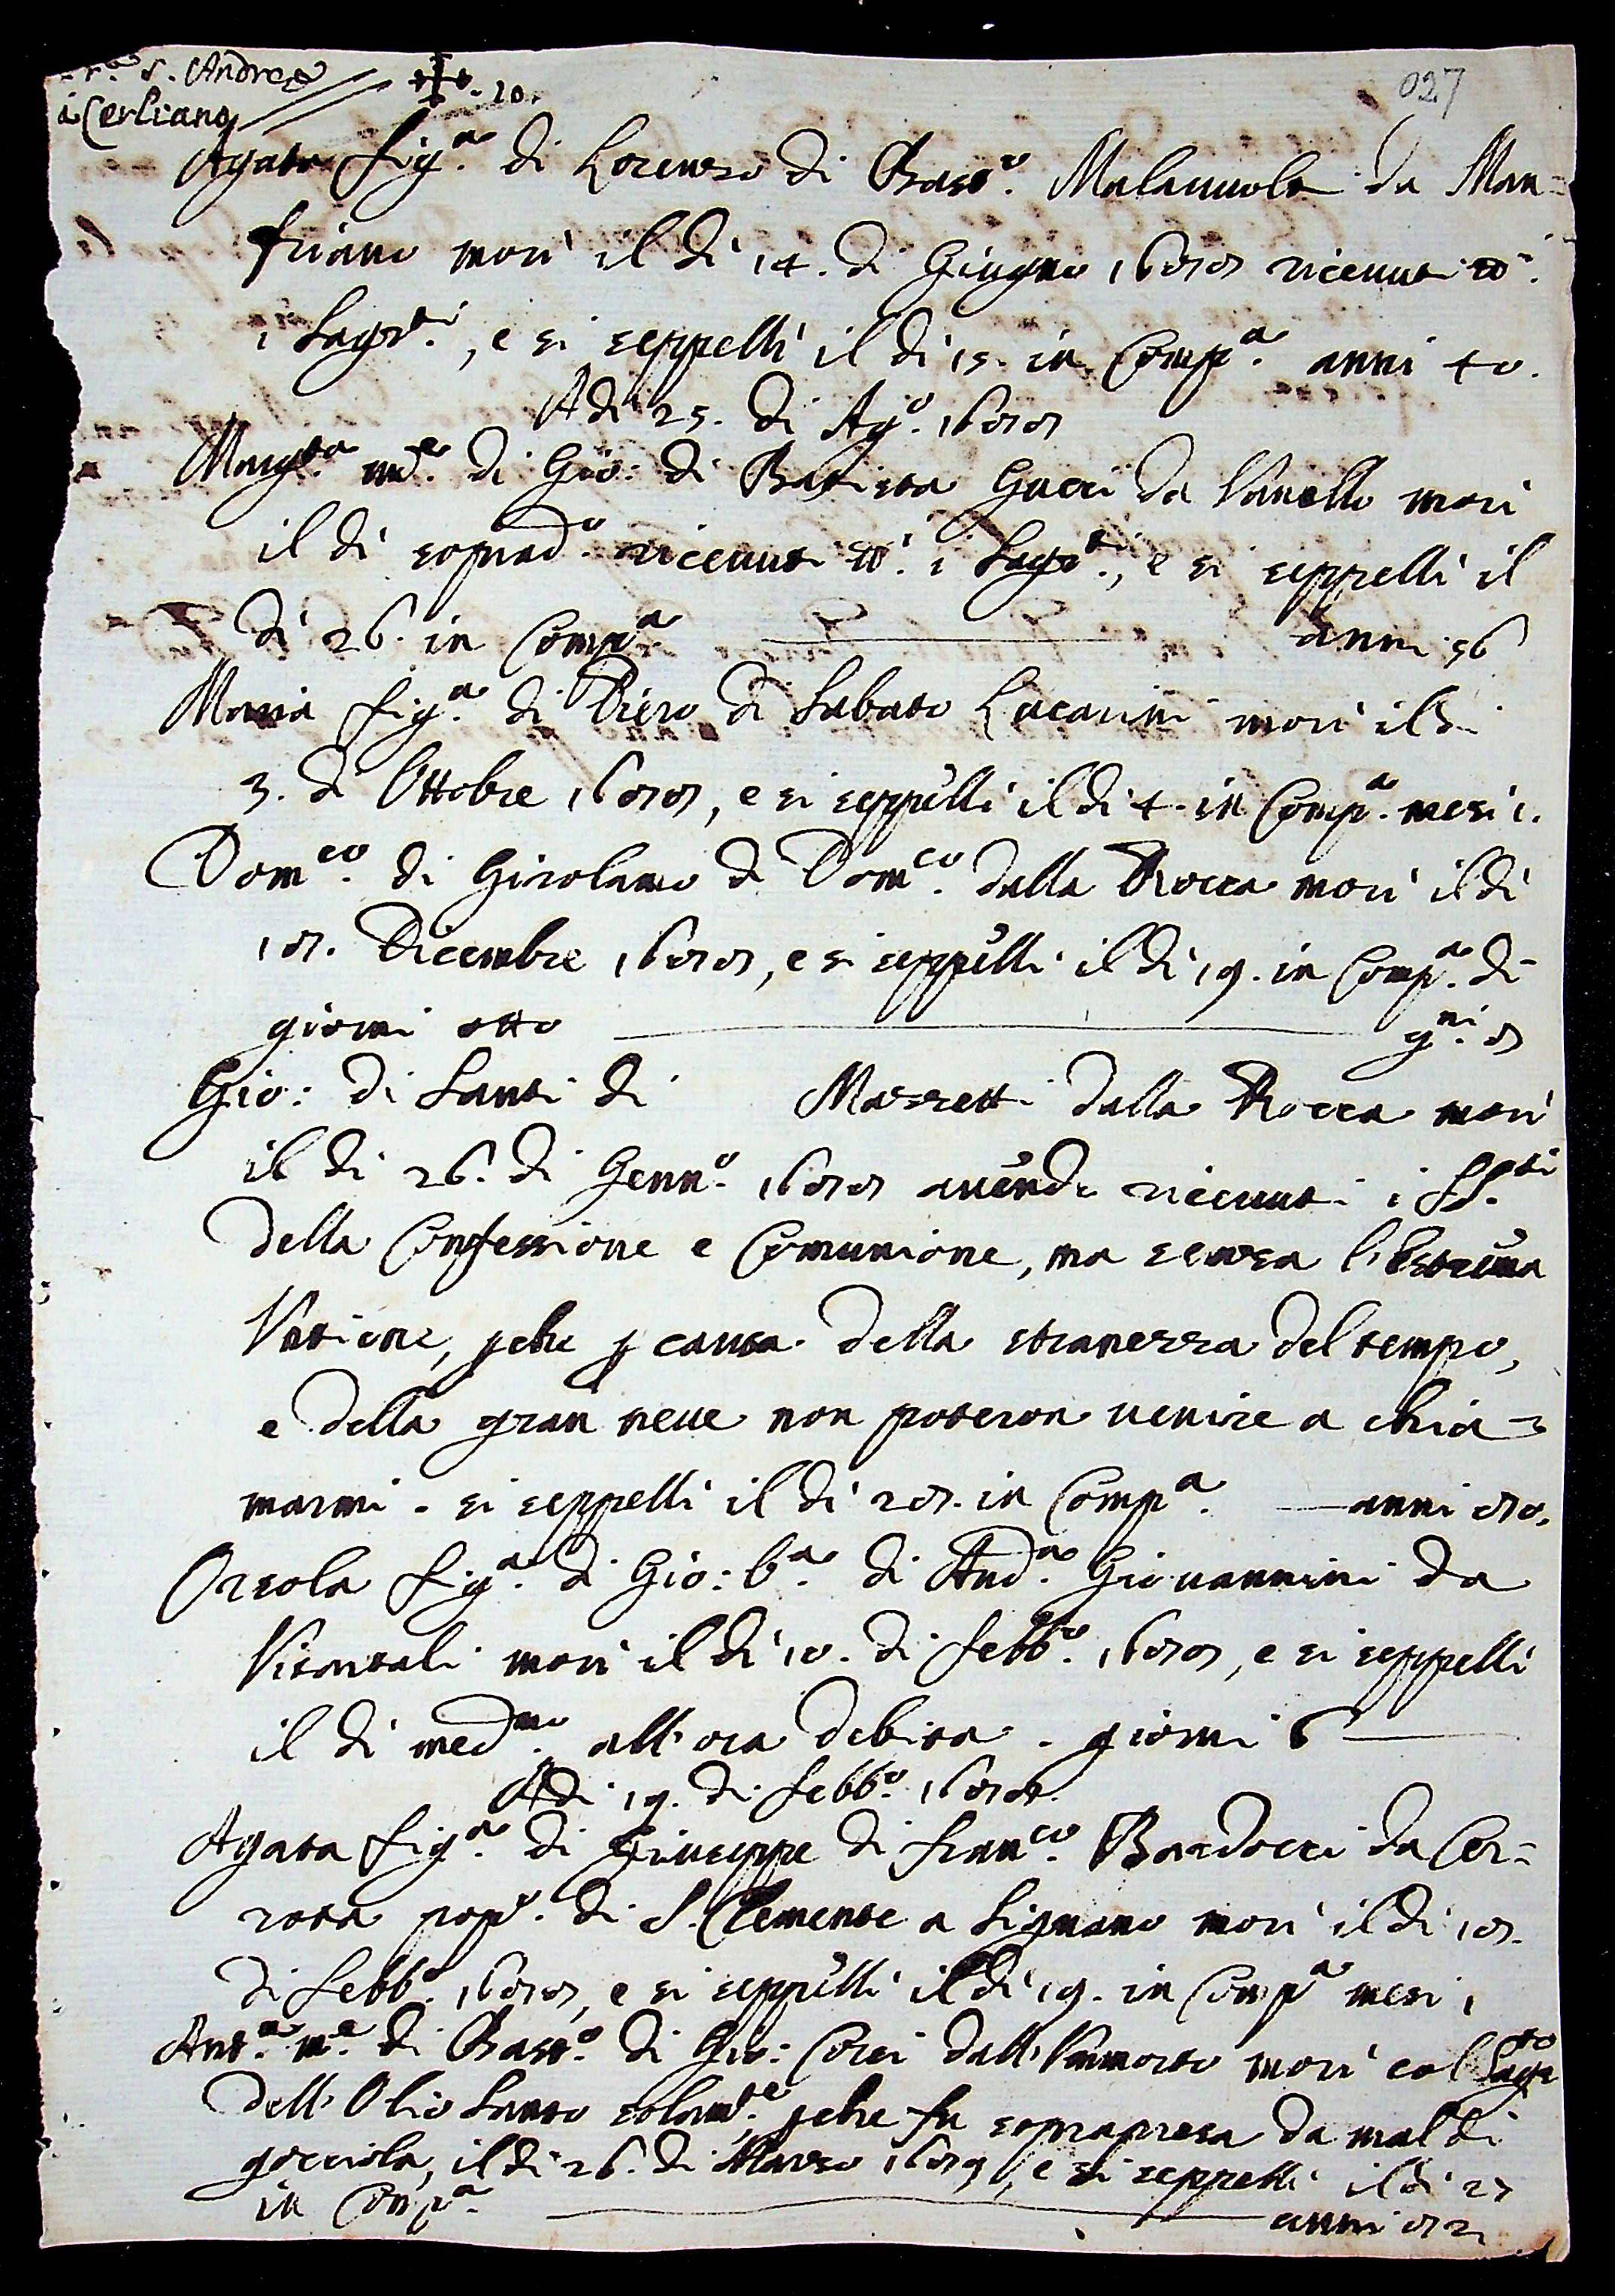 S. Andrea
a Cerliano
20.
027
Agata fig.a di Lorenzo di Bast.o da Man=
friano morì il dì 14. di Giugno 1688 riceuuti tt.i
i Sagr.ti, e si seppellì il dì 15. in Comp.a anni 40.
Adì 25. di Ag.o 1688
Marg.ta m.e di Gio: di Batista Gucci da Vanello morì
il dì soprad.o riceuuti tt.i i Sagr.ti, e si seppellì il
dì 26. in Comp.a anni 56
Maria fig.a di Piero di Sabato Lucarini morì il dì
3. di Ottobre 1688, e si seppellì il dì 4. in Comp.a mesi 1.
Dom.co di Girolamo di Dom.co dalla Rocca morì il dì
18. Dicembre 1688, e si seppellì il dì 19. in Comp.a di
giorni otto g.ni 8
Gio: di Santi di Mazzetti dalla Rocca morì
il dì 26. di Genn.o 1688 auendo riceuuti i SS.ti
della Confessione e Comunione, ma senza l'Estrema
Vntione, pche p causa della stranezza del tempo,
e della gran neue non poteron uenire a chia=
marmi. si seppellì il dì 28. in Comp.a anni 80.
Orsola fig.a di Gio: B.a di And.a Giouannini da
morì il dì 10. di febb.o 1688, e si seppellì
il dì med.mo all'ora debita. giorni 6
Adì 19. di febb.o 1688.
Agata fig.a di Giuseppe di Fran.co Bardocci da Cer=
reta pop.o di S. Clemente a Signano morì il dì 18.
di febb.o 1688, e si seppellì il dì 19. in Comp.a mesi 1
Ant.a m.e di Bast.o di Gio: Corsi dall' morì col Sag.to
dell'Olio Santo solam.te, pche fu soprapresa da mal di
gocciola, il dì 26. di Marzo 1689, e si seppellì il dì 27
in Comp.a anni 82